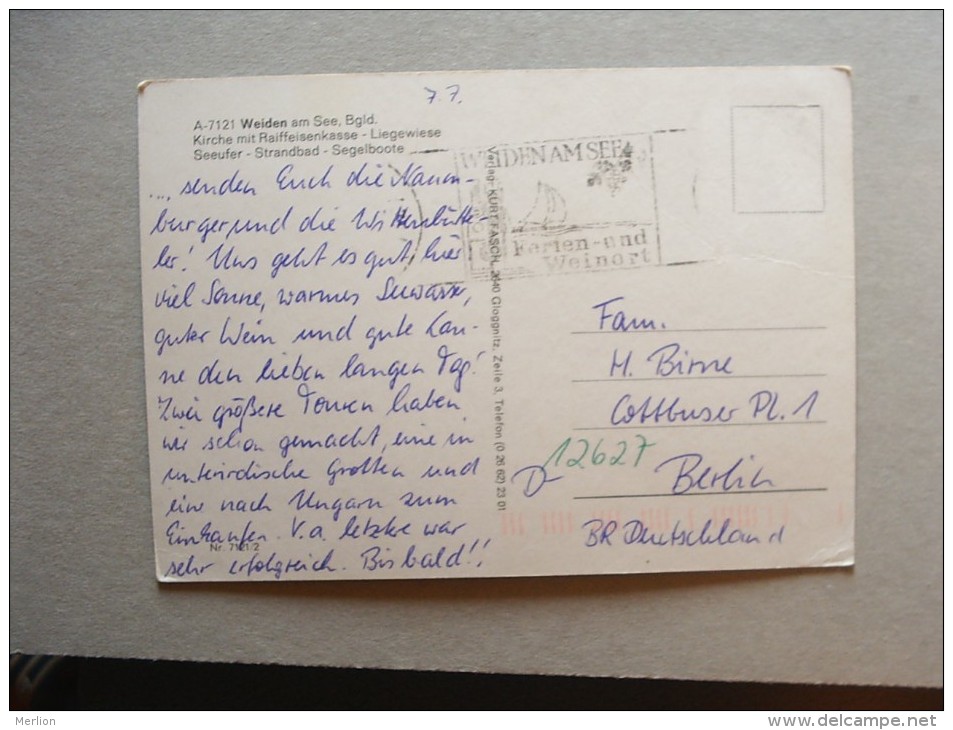 7.7.
A-7121 Weiden am See, Bgld.
Kirche mit Raiffeisenkasse - Liegewiese
Seeufer - Strandbad - Segelboote
..., senden Euch die Naum-
burger und die Wolfenbütte-
ler! Uns geht es gut, hier
viel Sonne, warmes Seewasser,
guter Wein und gute Lau-
ne den lieben langen Tag!
Zwei größere Touren haben
wir schon gemacht, eine in
unterirdische Grotten und
eine nach Ungarn zum
Einkaufen. V.a. letztere war
sehr erfolgreich. Bis bald!!
Nr. 7121/2
Verlag KURT FASCH, 2640 Gloggnitz, Zeile 3, Telefon (0 26 62) 23 01
WEIDEN AM SEE
Ferien-und
Weinort
Fam.
H. Birne
Cottbuser Pl. 1
D-12627
Berlin
BR Deutschland
Merlion
www.delcampe.net